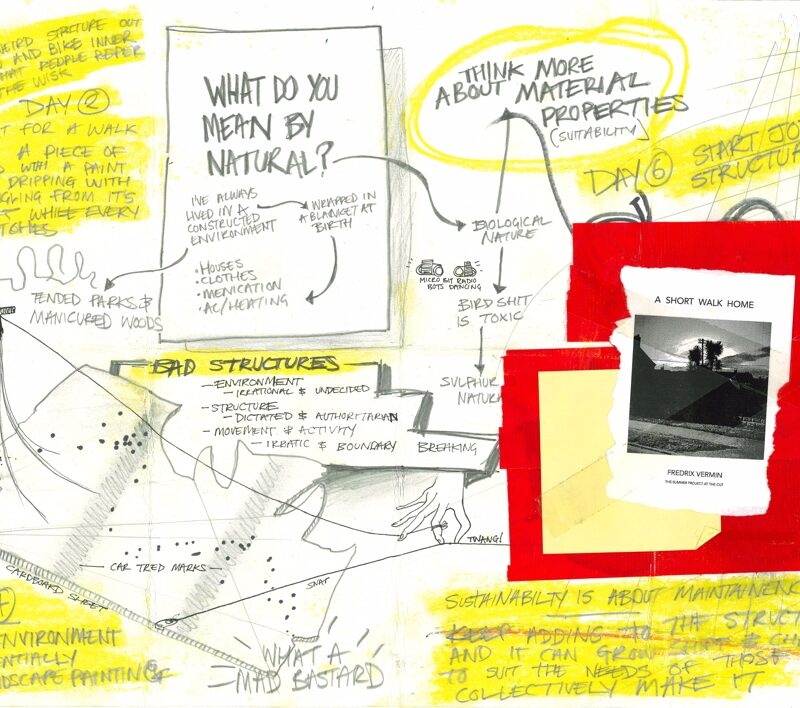 EIRD STRUCTURE OUT
AND BIKE INNER
HAT PEOPLE REFER
THE WISK
DAY 2
T FOR A WALK
A PIECE OF
WITH A PAINT
DRIPPING WITH
GLING FROM IT'S
WHILE EVERY
TCHES
WHAT DO YOU
MEAN BY
NATURAL?
I'VE ALWAYS
LIVED IN A
CONSTRUCTED
ENVIRONMENT
WRAPPED IN
A BLANKET AT
BIRTH
• HOUSES
• CLOTHES
• MENICATION
• AC/HEATING
TENDED PARKS &
MANICURED WOODS
THINK MORE
ABOUT MATERIAL
PROPERTIES
(SUITABILITY)
DAY 6
START JO
STRUCTUR
BIOLOGICAL
NATURE
MICRO BIT RADIO
BOTS DANCING
BIRD SHIT
IS TOXIC
SULPHUR
NATURA
BAD STRUCTURES
— ENVIRONMENT
— IRRATIONAL & UNDECIDED
— STRUCTURE
— DICTATED & AUTHORITARIAN
— MOVEMENT & ACTIVITY
— IRRATIC & BOUNDARY BREAKING
A SHORT WALK HOME
FREDRIX VERMIN
THE SUMMER PROJECT AT THE CUT
TWANG!
CAR TRED MARKS
SNAP
CARDBOARD SHEET
ENVIRONMENT
ENTIALLY
NDSCAPE PAINTING OF
WHAT A
MAD BASTARD
SUSTAINABILTY IS ABOUT MAINTAINENC
KEEP ADDING TO THE STRUCT
AND IT CAN GROW SHIFT & CH
TO SUIT THE NEEDS OF THOSE
COLLECTIVELY MAKE IT